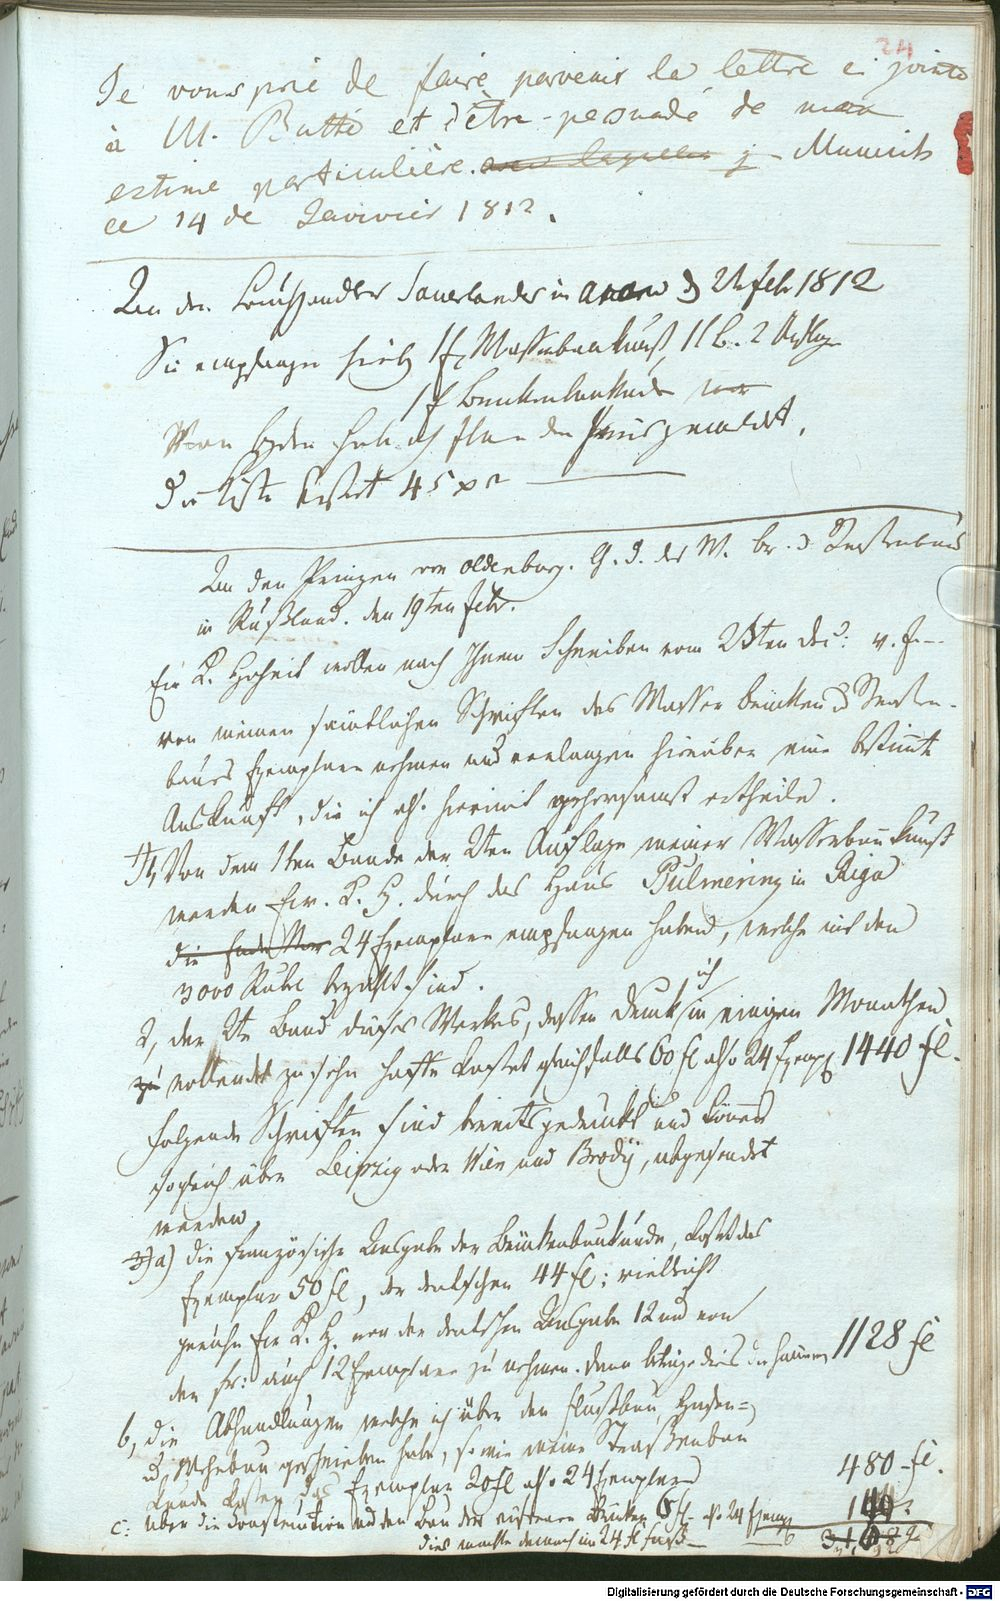 24
Je vous prie de faire parvenir la lettre ci jointe
à M. Butté et d'être persuadé de mon
estime particulière. Munich
ce 14 de Janvier 1812.
An den Buchhändler Sauerländer in Arau d 21 feb 1812
Sie empfangen hiebei 11 Ex Wasserbaukunst, 1 B. 2 Auflage
11 Brückenbaukunde
Von beiden habe ich Ihnen den Preis gemeldet.
Die Kiste kostet 45 xr
An den Prinzen von Oldenburg. G. D. der W. Br. d Straßenbaus
in Rußland. den 19ten febr.
Eur K. Hoheit wollen nach Ihrem Schreiben vom 25ten Dec: v. J.
von meinen sämtlichen Schriften des Wasser Brücken d Straßen-
baues Exemplare nehmen und verlangen hierüber eine bestimte
Auskunft, die ich hiermit gehorsamst ertheile.
1, Von dem 1ten Bande der 2ten Auflage meiner Wasserbaukunst
werden Eur. K. H. durch das Haus Pulmering in Riga
24 Exemplare empfangen haben, welche mit den
3000 Rubel bezahlt sind.
2, der 2te Band dieses Werkes, dessen Druk ich in einigen Monathen
vollendet zu sehn hoffe kostet gleichfalls 60 fl also 24 Exempl 1440 fl.
Folgende Schriften sind bereits gedrukt und können
sogleich über Leipzig oder Wien und Brody, abgesendet
werden
3) a) die französische Ausgabe der Brückenbaukunde, kostet das
Exemplar 50 fl, der deutschen 44 fl; vielleicht
geruhen Eur K. H. von der deutschen Ausgabe 12 und von
der fr: auch 12 Exemplare zu nehmen. Dann betrüge dies die Summe 1128 fl
b, die Abhandlungen welche ich über den Flußbau, Hafen-
d Wehrbau geschrieben habe, so wie meine Straßenbau
kunde kosten das Exemplar 20 fl also 24 Exemplare 480 fl.
c: über die Construction und den Bau der eisernen Brücken 6 fl. also 24 Exempl
dies machte demnach im 24 fl fuß
Digitalisierung gefördert durch die Deutsche Forschungsgemeinschaft - DFG